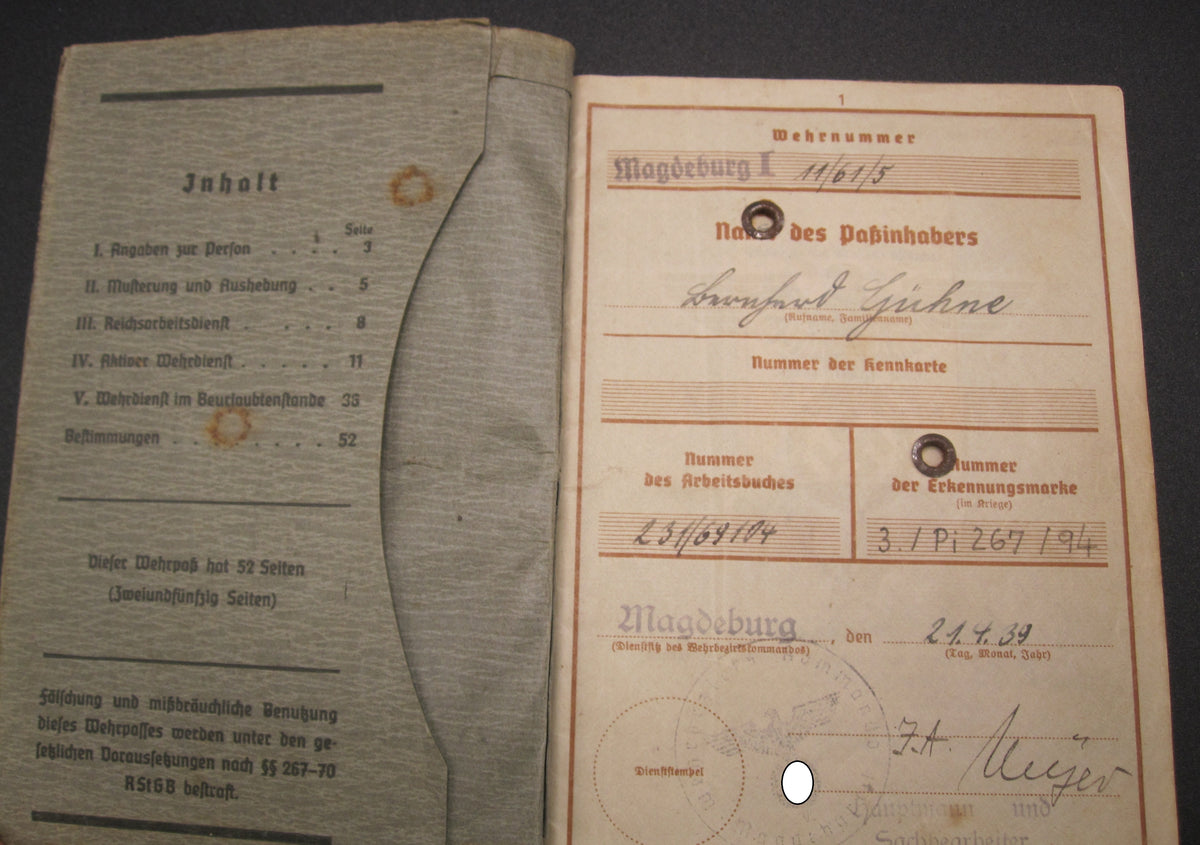 Inhalt
Seite
I. Angaben zur Person . . . . 3
II. Musterung und Aushebung . . 5
III. Reichsarbeitsdienst . . . . 8
IV. Aktiver Wehrdienst . . . . . 11
V. Wehrdienst im Beurlaubtenstande 36
Bestimmungen . . . . . . 52
Dieser Wehrpaß hat 52 Seiten
(Zweiundfünfzig Seiten)
Fälschung und mißbräuchliche Benutzung
dieses Wehrpasses werden unter den ge-
setzlichen Voraussetzungen nach §§ 267–70
RStGB bestraft.
1
Wehrnummer
Magdeburg I 11/61/5
Name des Paßinhabers
Bernhard Gühne
(Rufname, Familienname)
Nummer der Kennkarte
Nummer
des Arbeitsbuches
231/69104
Nummer
der Erkennungsmarke
(im Kriege)
3./Pi 267 / 94
Magdeburg, den 21.4.39
(Dienstsitz des Wehrbezirkskommandos) (Tag, Monat, Jahr)
Dienststempel
J.A. Meyer
Hauptmann und
Sachbearbeiter